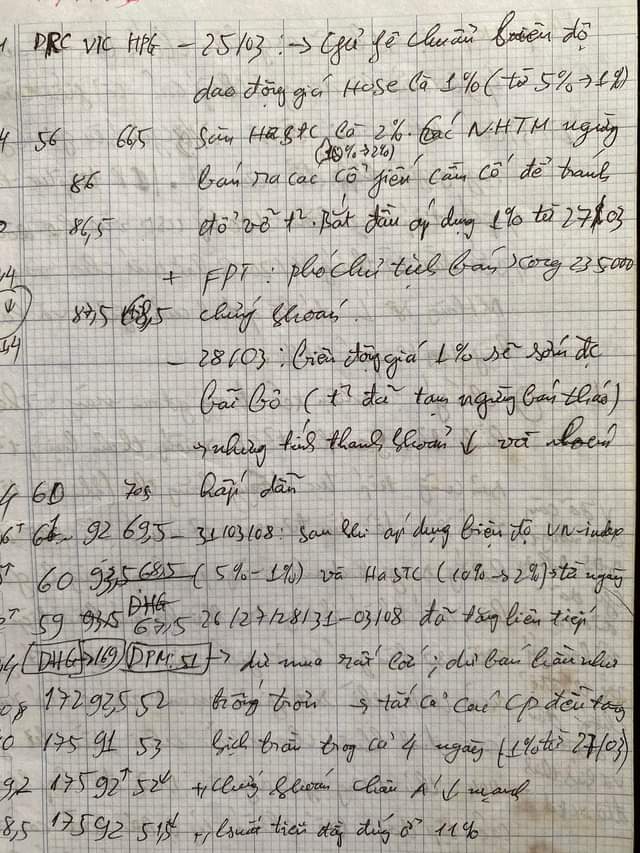 DRC VIC HPG – 25/03: → Giữ giá chuẩn biên độ
dao động giá HOSE là 1% (từ 5% → 1%)
56 66,5 sàn HaSTC là 2%. Các NHTM ngừng
(10% → 2%)
86 bán ra các cổ phiếu cầm cố để tránh
86,5 đổ vỡ t². Bắt đầu áp dụng 1% từ 27/03
+ FPT: phó chủ tịch bán xong 235000
87,5 68,5 chứng khoán.
– 28/03: biên động giá 1% sẽ sớm đc
bãi bỏ (t² đã tạm ngừng bán tháo)
→ nhưng tính thanh khoản ↓ và
60 70,5 hấp dẫn
61 92 69,5 – 31/03/08: sau khi áp dụng biên độ VN-index
60 93,5 68,5 (5% – 1%) và HaSTC (10% → 2%) → từ ngày
DHG
59 93,5 67,5 26/27/28/31-03/08 đã tăng liên tiếp
DHG → 169 DPM: 51 → dư mua rất lớn; dư bán hầu như
172 92,5 52 trống trơn → tất cả các CP đều tăng
175 91 53 kịch trần trog cả 4 ngày (1% từ 27/03)
9,2 175 92↑ 52↓ → chứng khoán châu Á ↓ mạnh
8,5 175 92 51,5↓ → lsuất tiền đồng đứng ở 11%